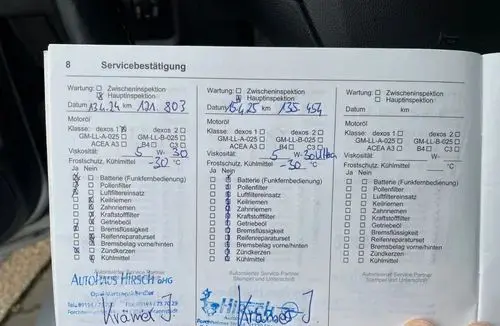 8 Servicebestätigung
Wartung: Zwischeninspektion
Hauptinspektion
Datum 13.4.24 km 131.803
Motoröl
Klasse: dexos 1 dexos 2
GM-LL-A-025 GM-LL-B-025
ACEA A3 B4 C3
Viskosität: 5 W- 30
Frostschutz, Kühlmittel -30 °C
Ja Nein
Batterie (Funkfernbedienung)
Pollenfilter
Luftfiltereinsatz
Keilriemen
Zahnriemen
Kraftstofffilter
Getriebeöl
Bremsflüssigkeit
Reifenreparaturset
Bremsbelag vorne/hinten
Zündkerzen
Kühlmittel
Autorisierter Service Partner
AUTOHAUS HIRSCH
Krämer J.
Wartung: Zwischeninspektion
Hauptinspektion
Datum 15.4.25 km 135 454
Motoröl
Klasse: dexos 1 dexos 2
GM-LL-A-025 GM-LL-B-025
ACEA A3 B4 C3
Viskosität: 5 W- 30
Frostschutz, Kühlmittel -30 °C
Ja Nein
Batterie (Funkfernbedienung)
Pollenfilter
Luftfiltereinsatz
Keilriemen
Zahnriemen
Kraftstofffilter
Getriebeöl
Bremsflüssigkeit
Reifenreparaturset
Bremsbelag vorne/hinten
Zündkerzen
Kühlmittel
Autorisierter Service Partner
Stempel und Unterschrift
Hirsch
Krämer J.
Wartung: Zwischeninspektion
Hauptinspektion
Datum km
Motoröl
Klasse: dexos 1 dexos 2
GM-LL-A-025 GM-LL-B-025
ACEA A3 B4 C3
Viskosität: W-
Frostschutz, Kühlmittel °C
Ja Nein
Batterie (Funkfernbedienung)
Pollenfilter
Luftfiltereinsatz
Keilriemen
Zahnriemen
Kraftstofffilter
Getriebeöl
Bremsflüssigkeit
Reifenreparaturset
Bremsbelag vorne/hinten
Zündkerzen
Kühlmittel
Autorisierter Service Partner
Stempel und Unterschrift